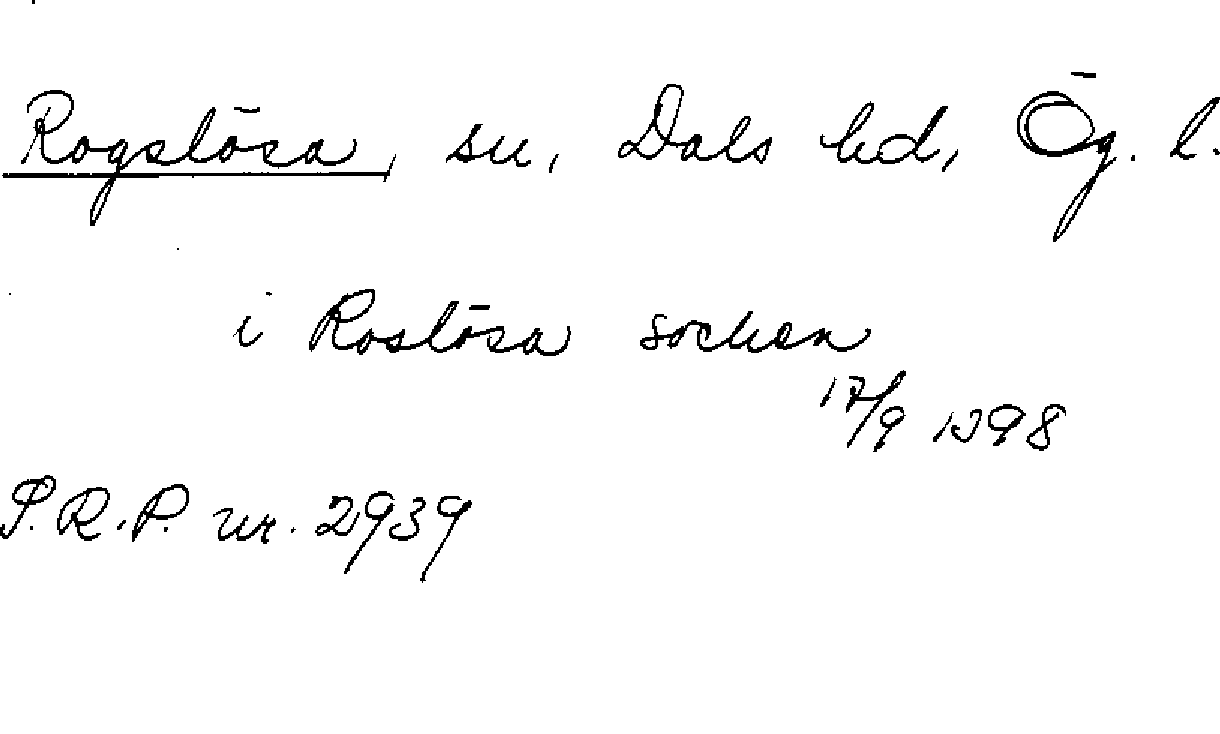 Rogslösa, sn, Dals hd, Ög. l.
i Roslösa socken
17/9 1398
S.R.P. nr. 2939